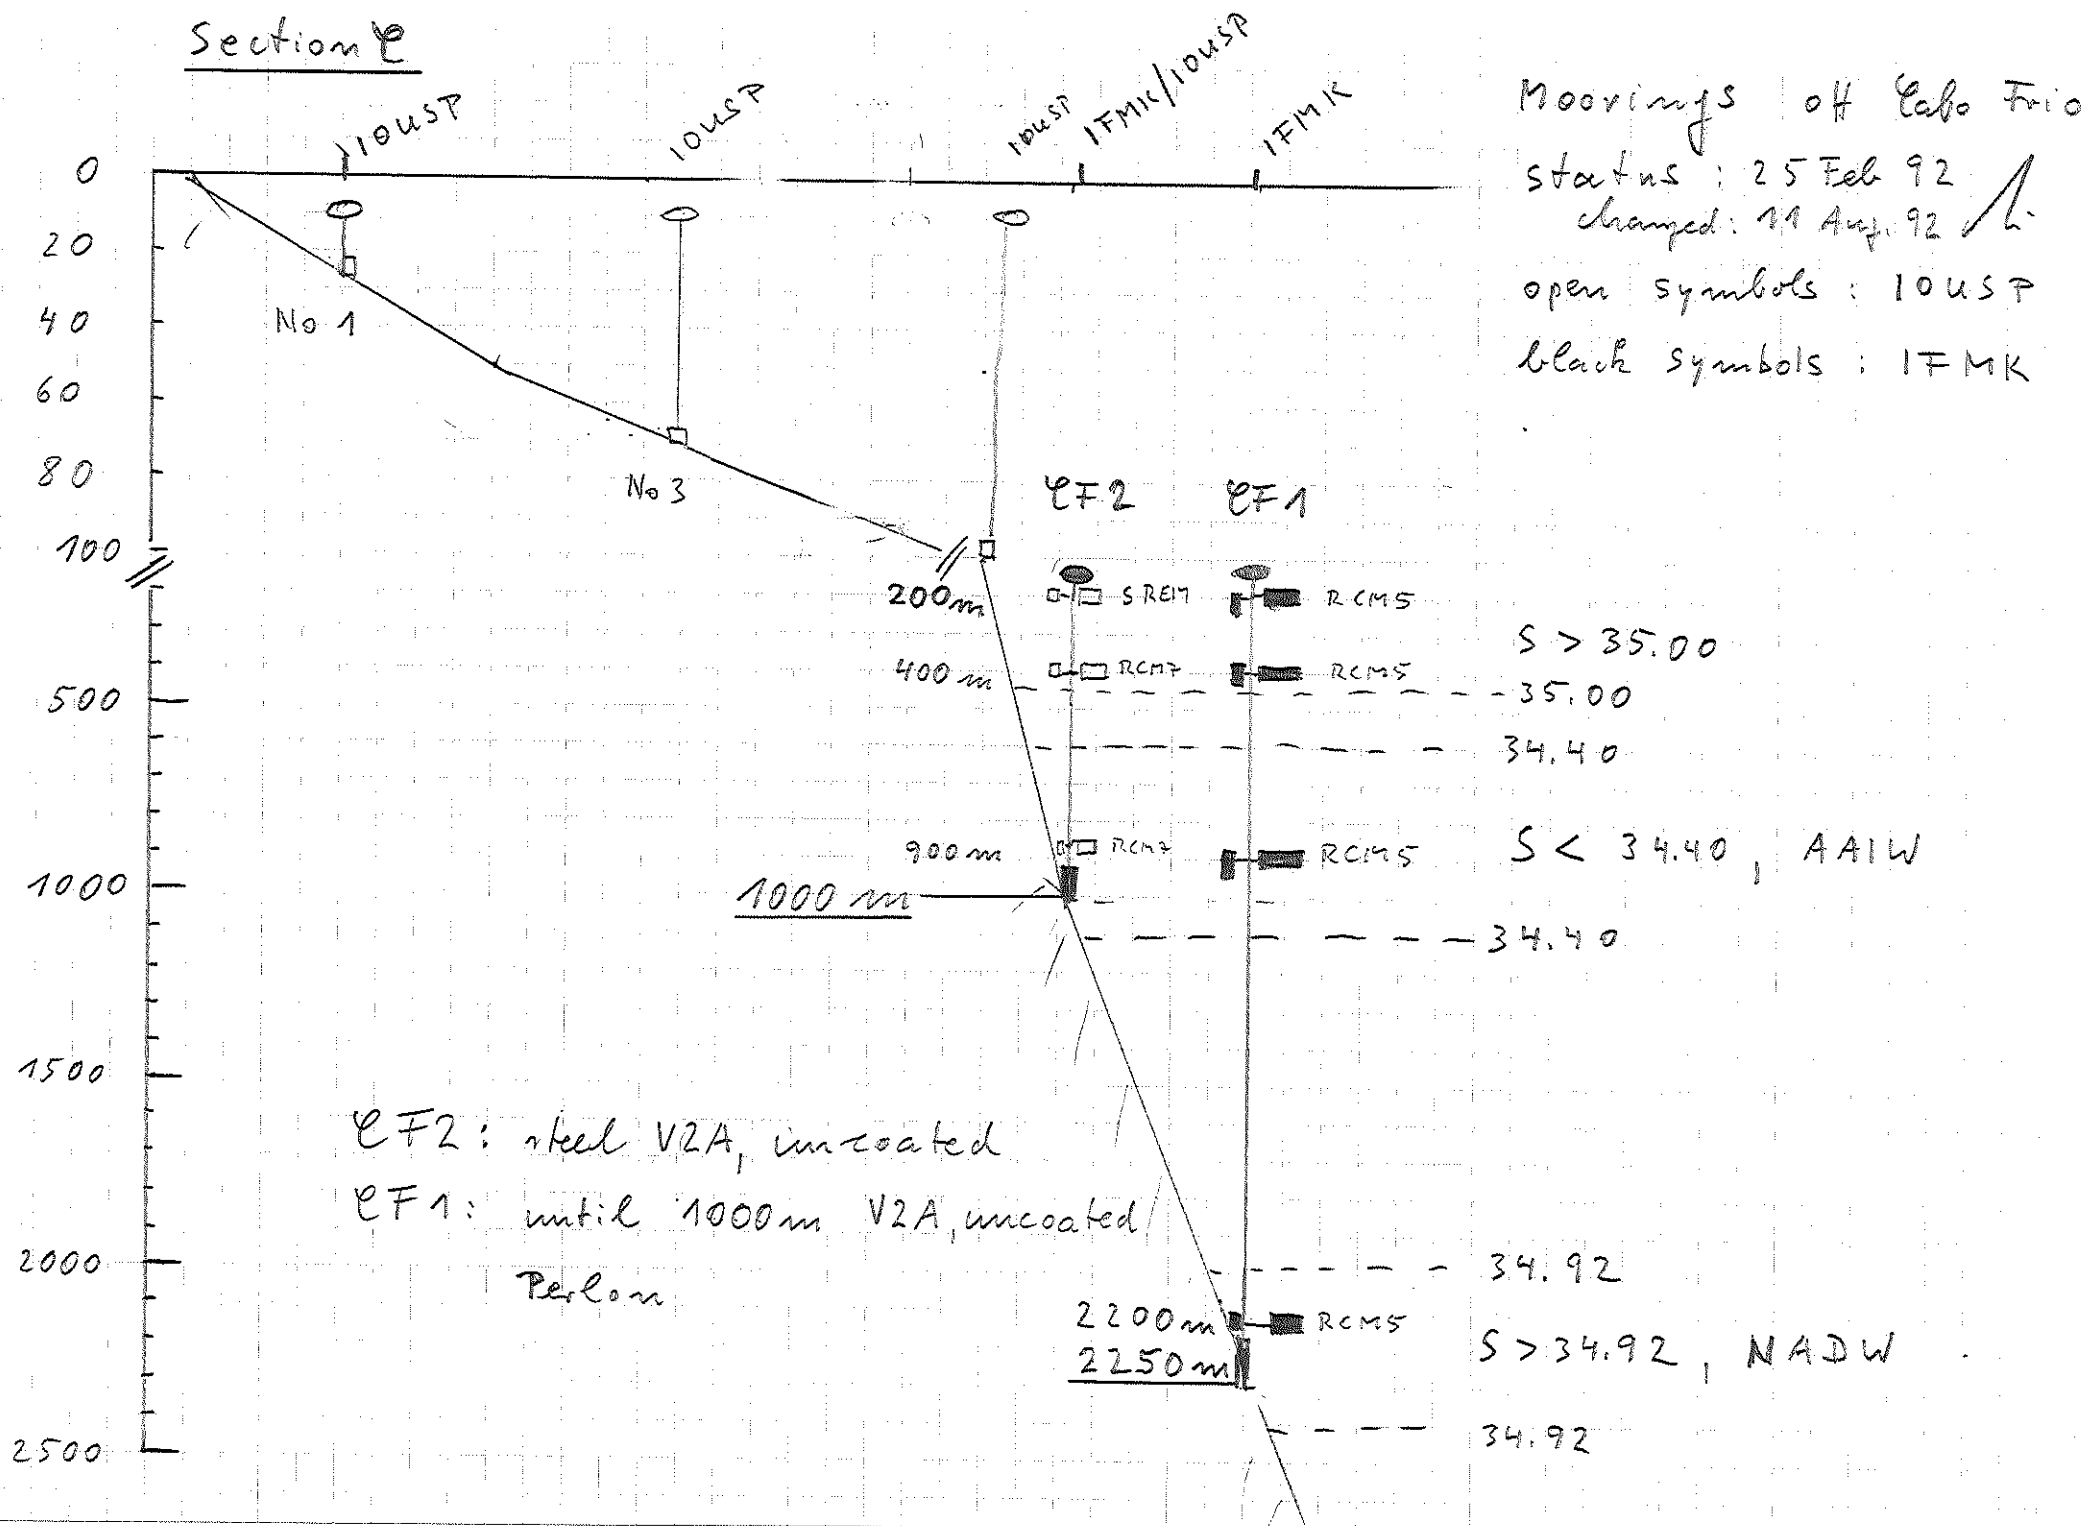 Section C
IOUSP
IOUSP
IOUSP
IFMK/IOUSP
IFMK
Moorings off Cabo Frio
status : 25 Feb 92
changed: 11 Aug. 92
open symbols : IOUSP
black symbols : IFMK
0
20
40
60
80
100
500
1000
1500
2000
2500
No 1
No 3
CF2
CF1
200m
SREM
RCM5
S > 35.00
400 m
RCM7
RCM5
35.00
34.40
900 m
RCM7
RCM5
S < 34.40, AAIW
1000 m
34.40
CF2: steel V2A, uncoated
CF1: until 1000m V2A, uncoated
Perlon
34.92
2200m
RCM5
2250m
S > 34.92, NADW
34.92